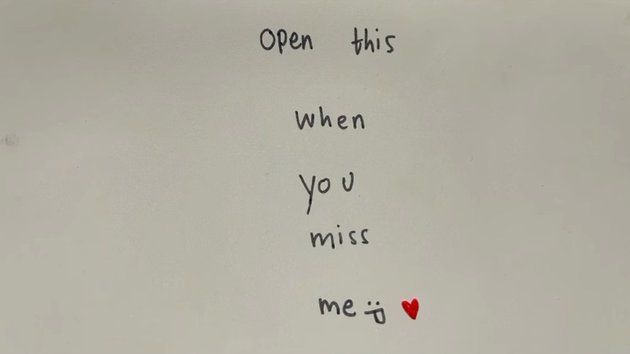 Open this
when
you
miss
me :P ♥